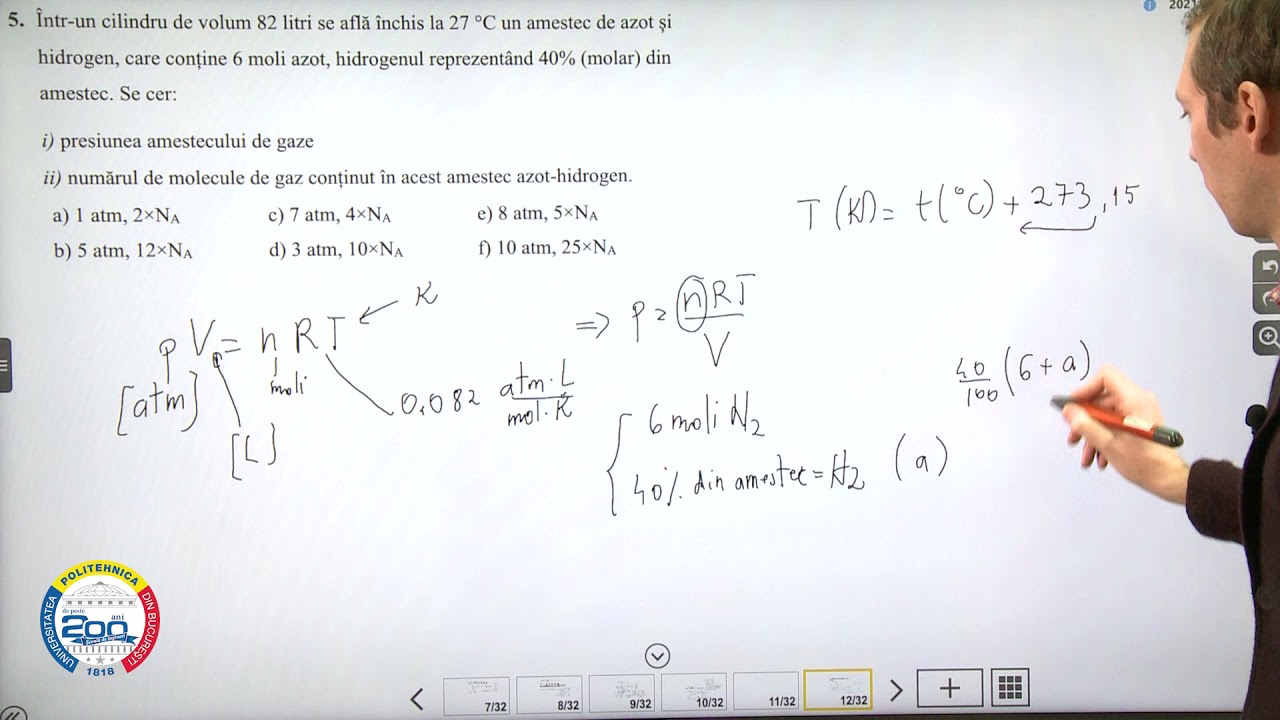 5. Într-un cilindru de volum 82 litri se află închis la 27 °C un amestec de azot și
hidrogen, care conține 6 moli azot, hidrogenul reprezentând 40% (molar) din
amestec. Se cer:
i) presiunea amestecului de gaze
ii) numărul de molecule de gaz conținut în acest amestec azot-hidrogen.
a) 1 atm, 2×NA c) 7 atm, 4×NA e) 8 atm, 5×NA
b) 5 atm, 12×NA d) 3 atm, 10×NA f) 10 atm, 25×NA
T (K) = t(°C) + 273,15
K
pV = nRT
[atm]
[L]
moli
0.082 atm·L / mol·K
=> p = nRT / V
6 moli N2
40% din amestec = H2 (a)
40/100 (6 + a)
UNIVERSITATEA POLITEHNICA DIN BUCUREȘTI
de peste
200 ani
1818
7/32
8/32
9/32
10/32
11/32
12/32